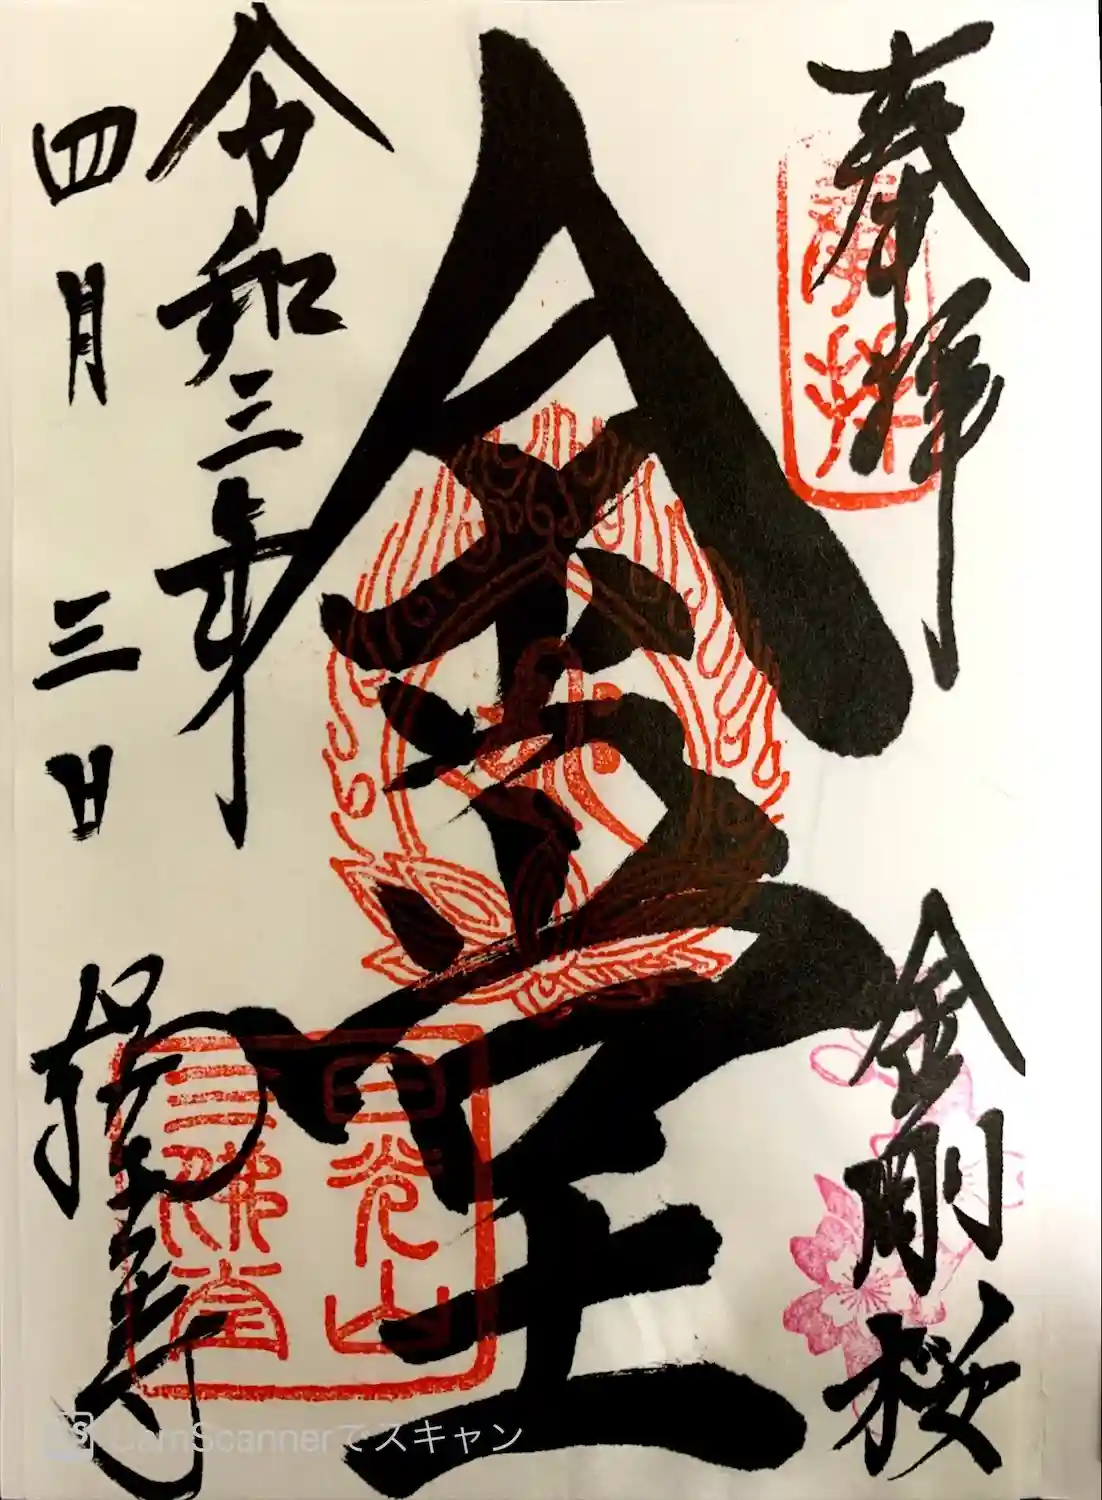 奉拝
金剛桜
金堂
令和三年
四月三日
輪王寺
日光山
三佛堂
CamScannerでスキャン